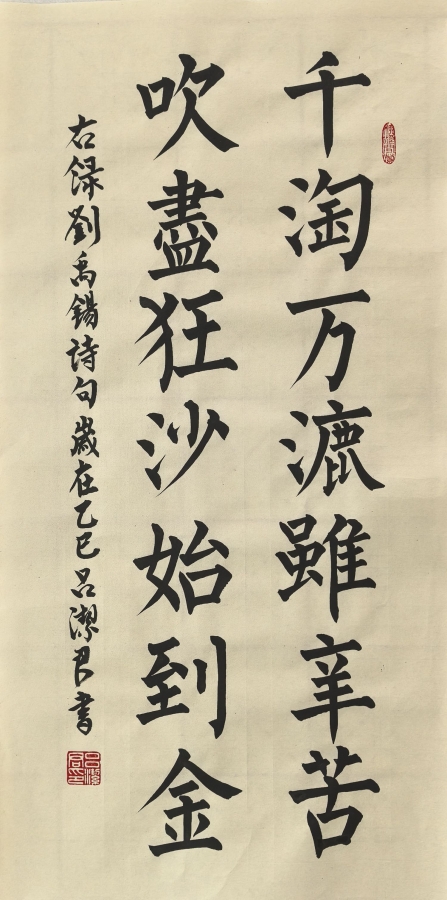 千淘万漉雖辛苦
吹盡狂沙始到金
右録劉禹錫詩句歲在乙巳吕潔君書